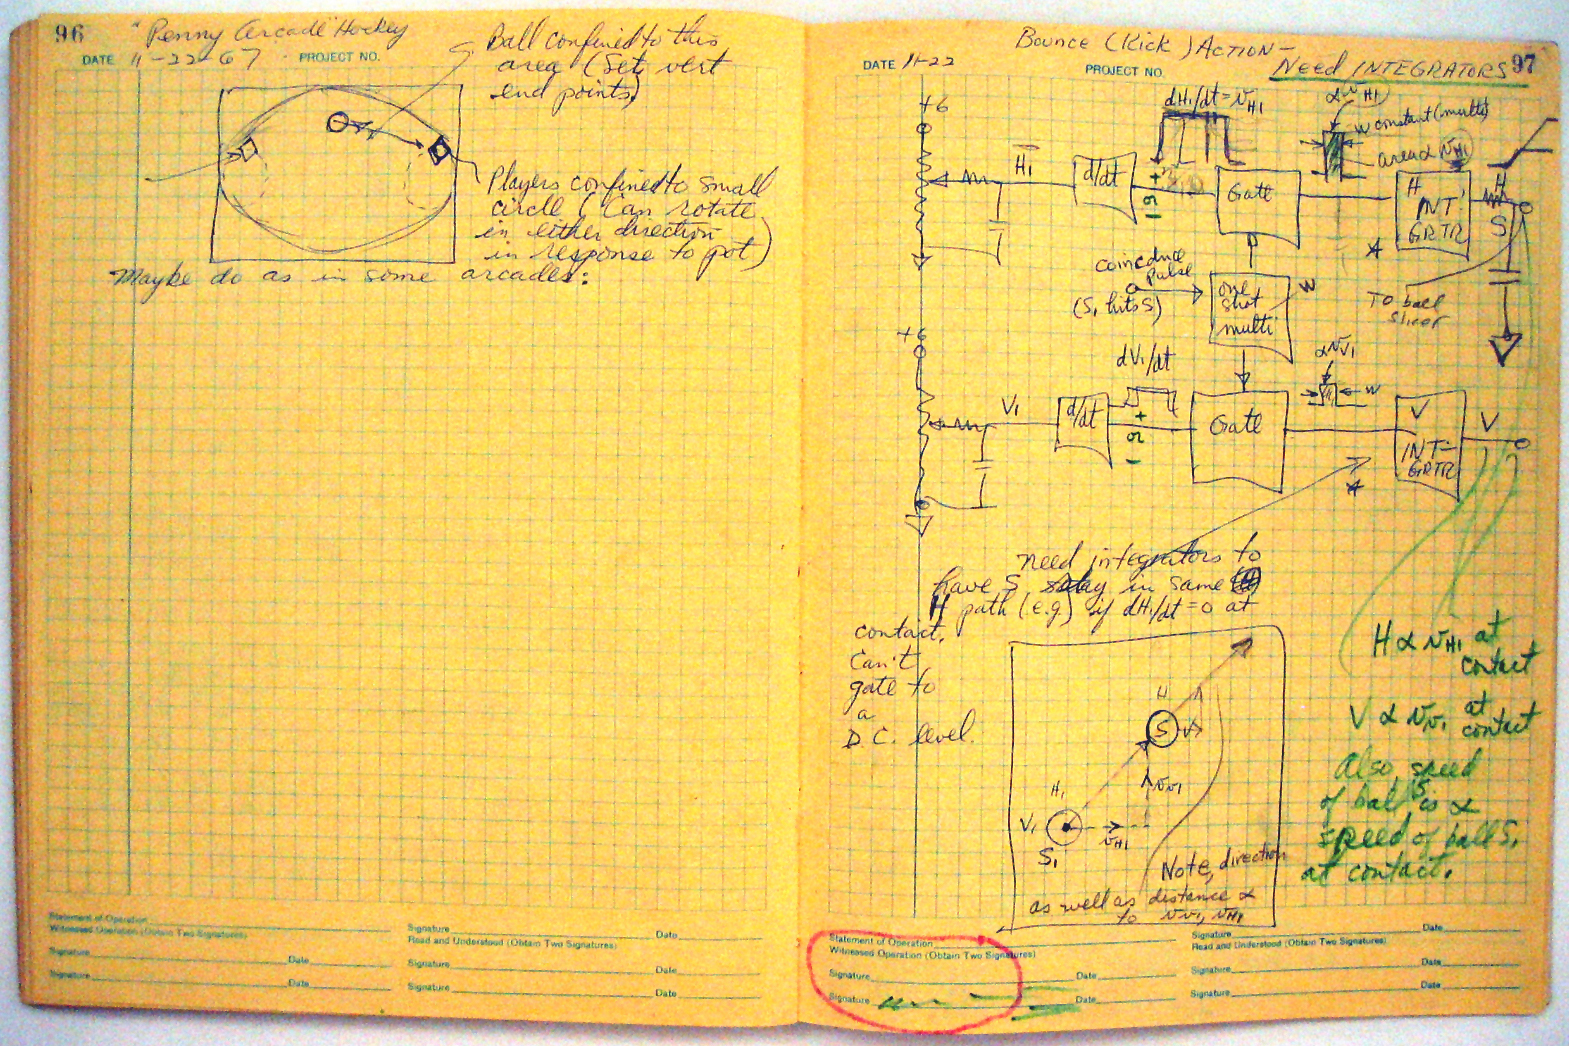 96
"Penny Arcade" Hockey
DATE 11-22-67 PROJECT NO.
Ball confined to this
area (Set vert
end points)
Players confined to small
circle (Can rotate
in either direction
in response to pot)
Maybe do as in some arcades:
Statement of Operation
Witnessed Operation (Obtain Two Signatures)
Signature Date
Signature Date
Signature Date
Read and Understood (Obtain Two Signatures)
Signature Date
Signature Date
Bounce (Kick) ACTION -
Need INTEGRATORS 97
DATE 11-22 PROJECT NO.
+6
dH1/dt = vH1
∝ vH1
W constant (multi)
area ∝ vH1
H1
d/dt
+ or -
Gate
H
INT
GRTR
H
S
coincidence
pulse
(S1 hits S)
one
shot
multi
W
To ball
slicer
+6
dV1/dt
∝ vV1
W
V1
d/dt
+ or -
Gate
V
INT-
GRTR
V
need integrators to
have S stay in same
H path (e.g.) if dH1/dt = 0 at
contact.
Can't
gate to
a
D.C. level.
H
S
V
H1
V1
S1
vV1
vH1
Note, direction
as well as distance ∝
to vV1, vH1
H ∝ vH1 at
contact
V ∝ vV1 at
contact
Also, speed
of ball S is ∝
speed of ball S1
at contact.
Statement of Operation
Witnessed Operation (Obtain Two Signatures)
Signature Date
Signature Date
Signature Date
Read and Understood (Obtain Two Signatures)
Signature Date
Signature Date